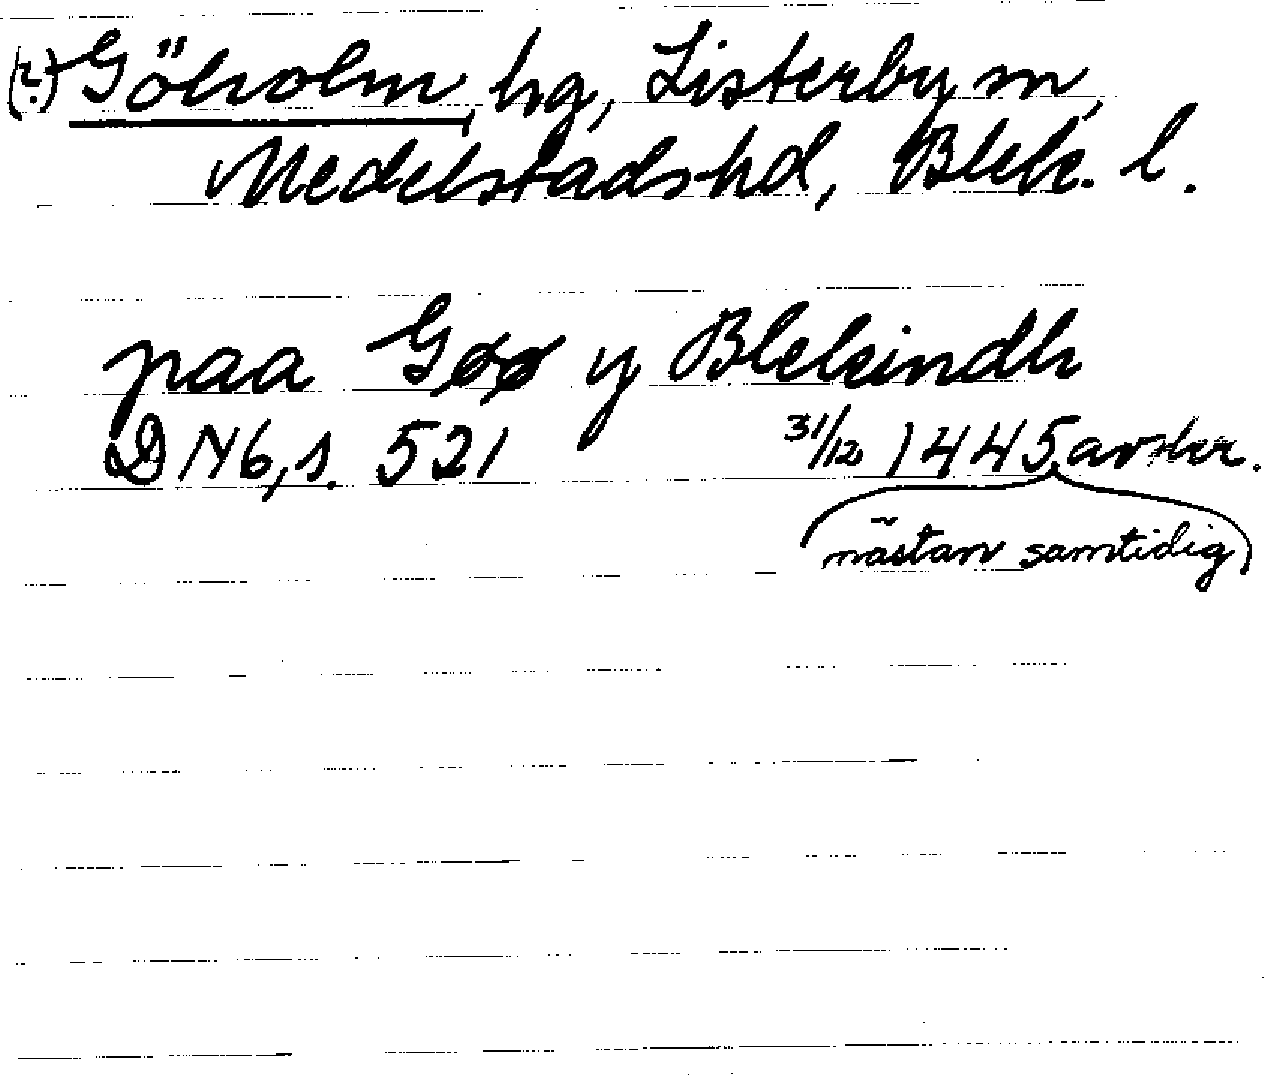 (?) Göholm, hg, Listerby sn,
Medelstads hd, Blek. l.
paa Gøø y Blekindh
DN 6, s. 521 31/12 1445 avskr.
(nästan samtidig)